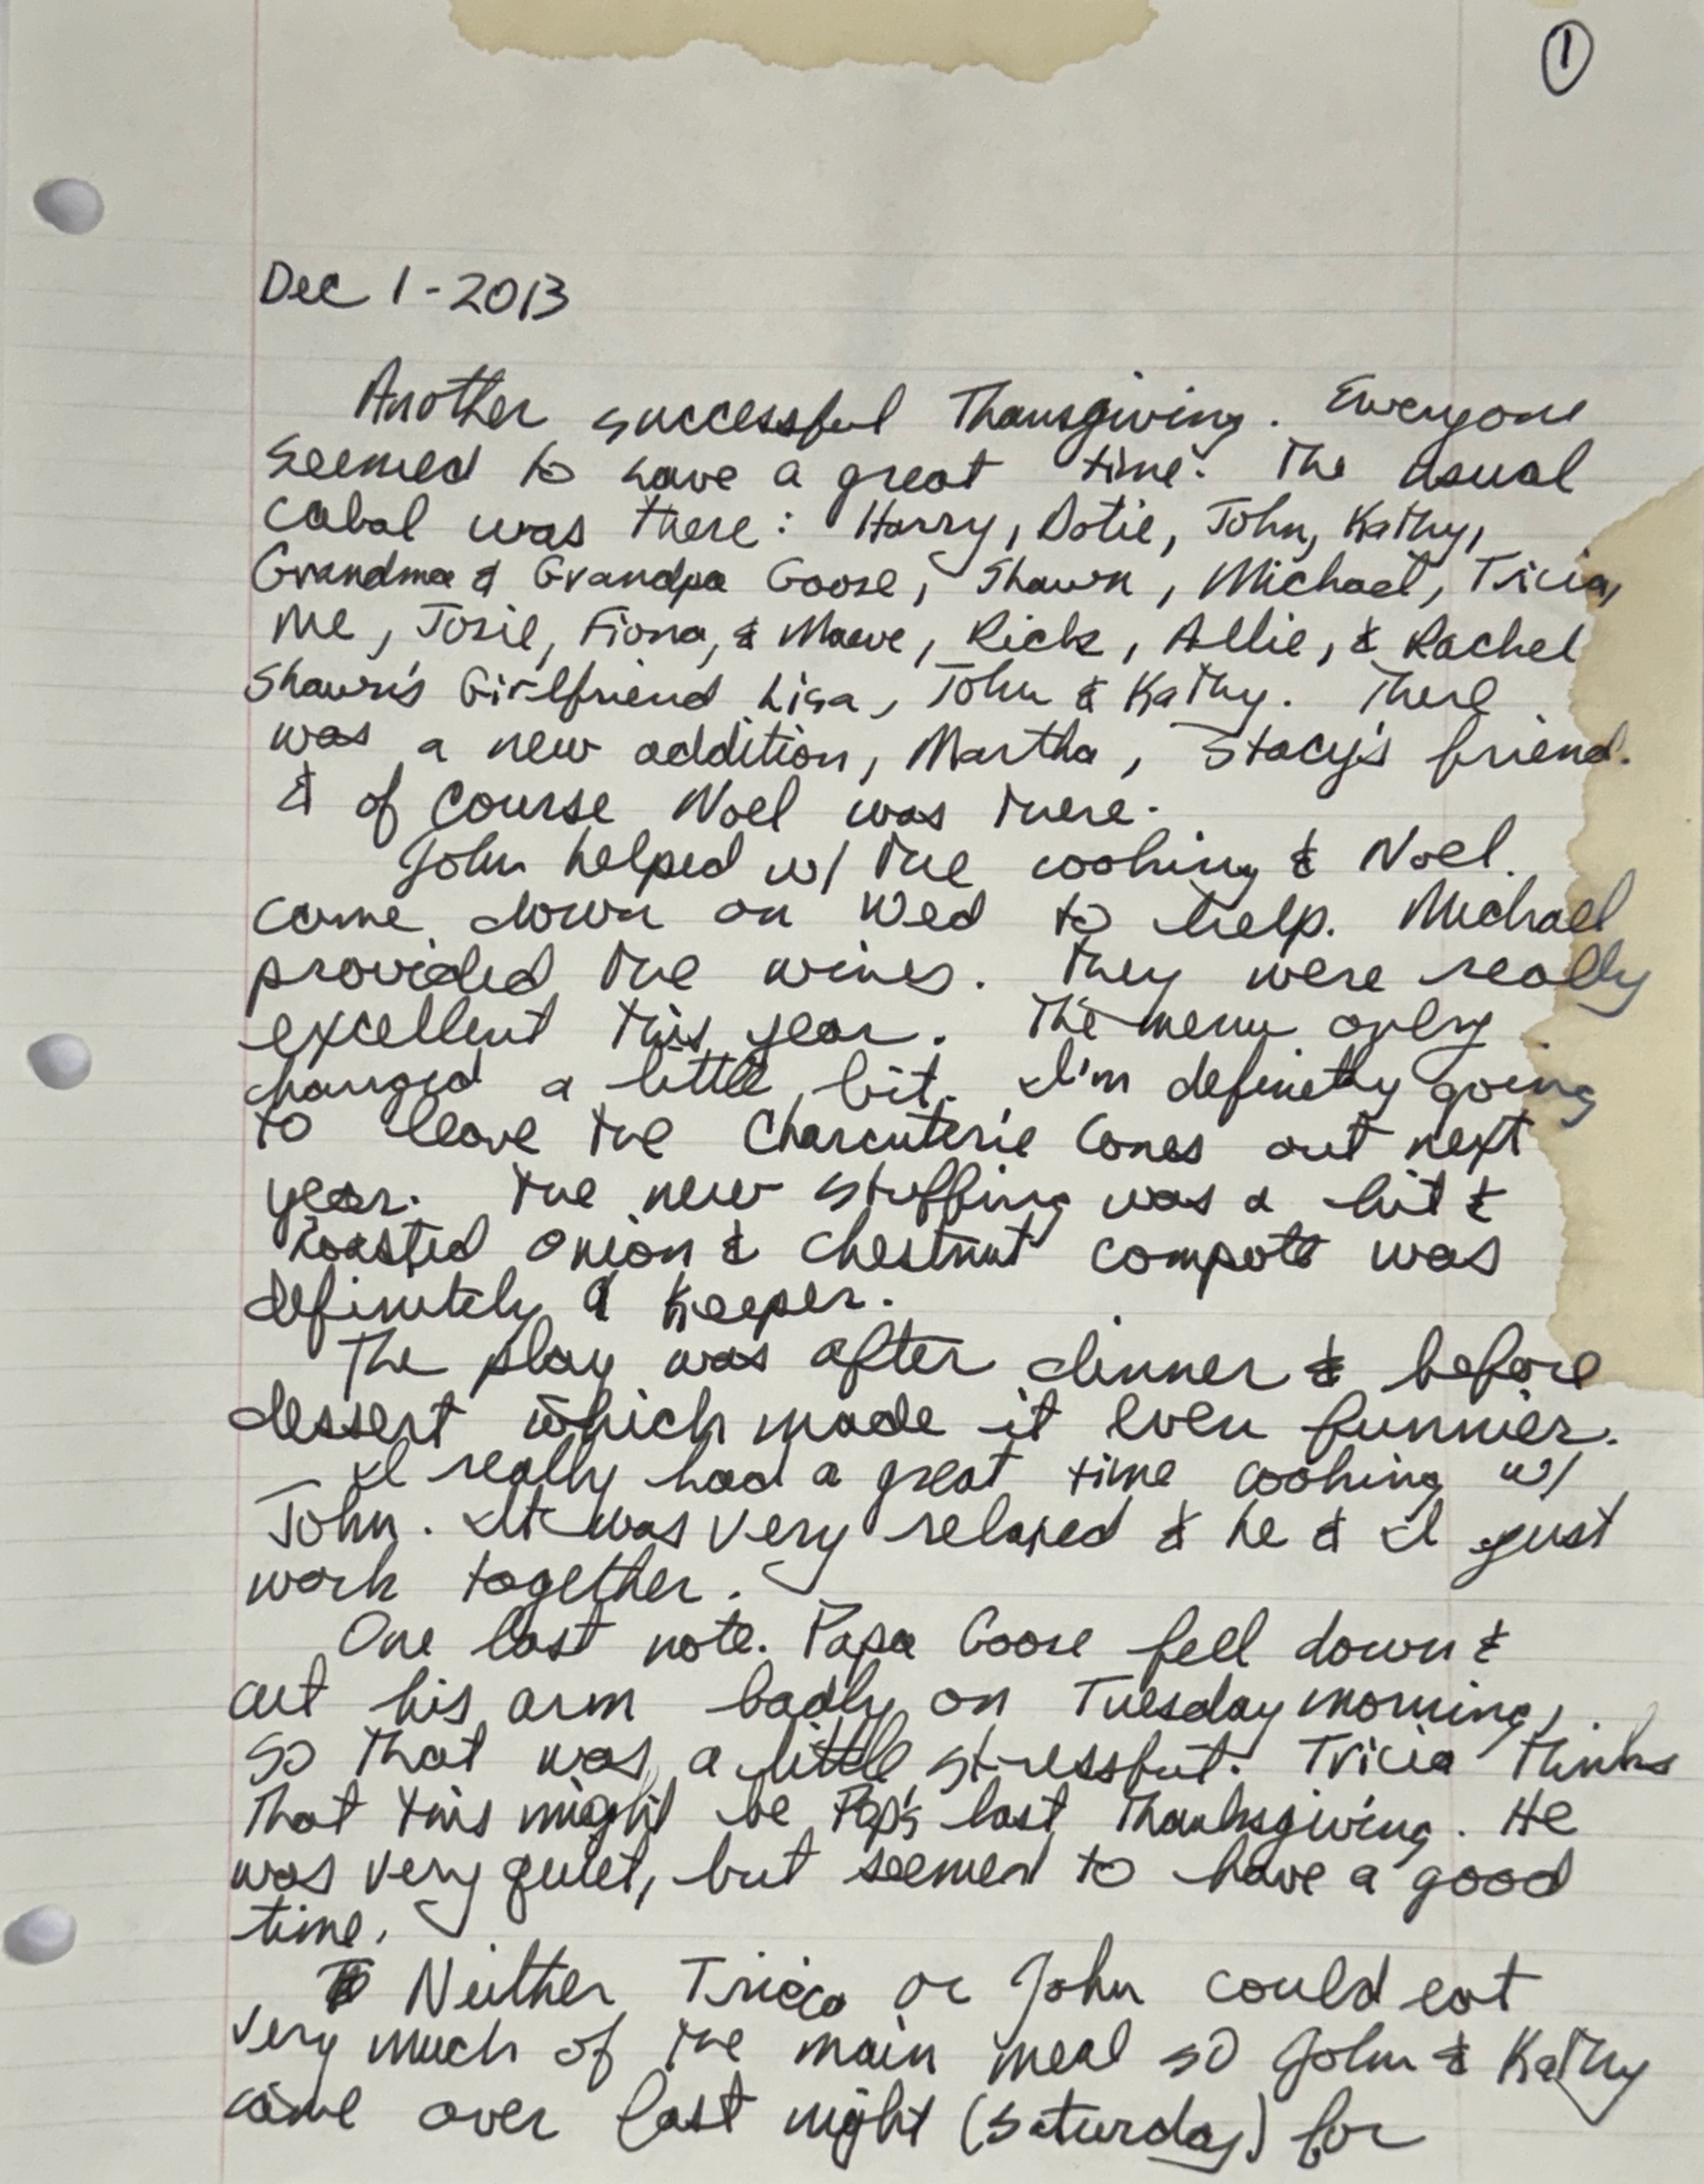 1
Dec 1-2013
Another successful Thansgiving. Everyone
seemed to have a great time. The usual
cabal was there: Harry, Dotie, John, Kathy,
Grandma & Grandpa Goose, Shawn, Michael, Tricia,
me, Josie, Fiona, & Maeve, Rick, Allie, & Rachel
Shawn's Girlfriend Lisa, John & Kathy. There
was a new addition, Martha, Stacy's friend.
& of course Noel was there.
John helped w/ the cooking & Noel
came down on Wed to help. Michael
provided the wines. They were really
excellent this year. The menu only
changed a little bit. I'm definetly going
to leave the Charcuterie Cones out next
year. The new stuffing was a hit &
roasted onion & chestnut compote was
definitely a keeper.
The play was after dinner & before
dessert which made it even funnier.
I really had a great time cooking w/
John. It was very relaxed & he & I just
work together.
One last note. Papa Goose fell down &
cut his arm badly on Tuesday morning,
so that was a little stressful. Tricia thinks
that this might be Pop's last Thanksgiving. He
was very quiet, but seemed to have a good
time.
Neither Tricia or John could eat
very much of the main meal so John & Kathy
came over last night (Saturday) for